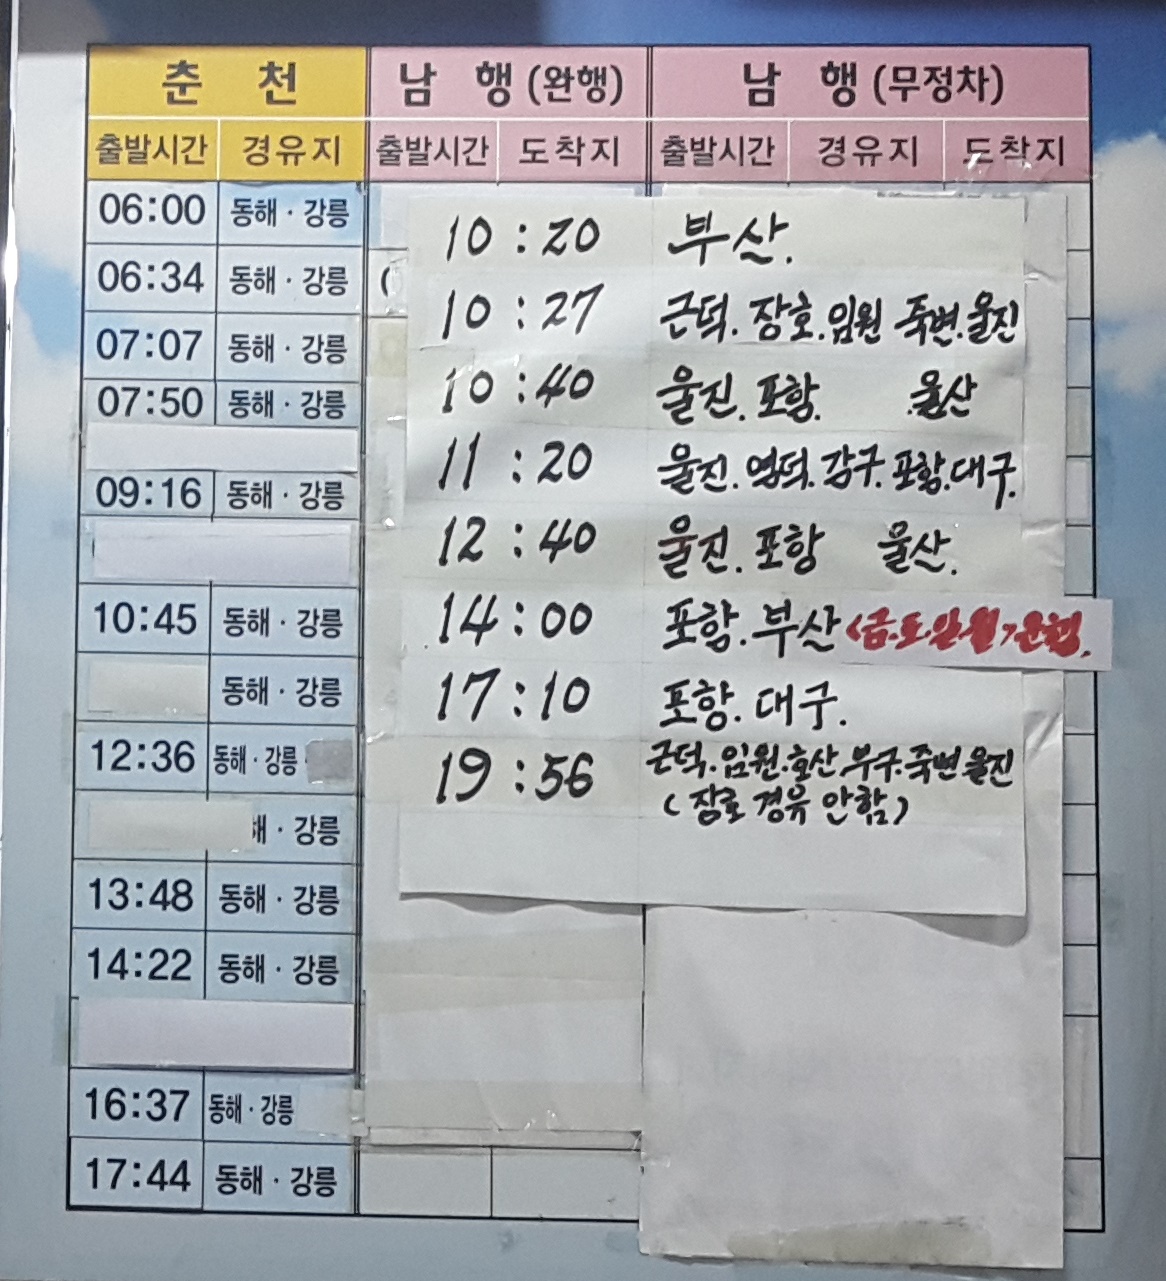 춘 천 남 행 (완행) 남 행 (무정차)
출발시간 경유지 출발시간 도착지 출발시간 경유지 도착지
06:00 동해 · 강릉
06:34 동해 · 강릉
07:07 동해 · 강릉
07:50 동해 · 강릉
09:16 동해 · 강릉
10:45 동해 · 강릉
동해 · 강릉
12:36 동해 · 강릉
· 강릉
13:48 동해 · 강릉
14:22 동해 · 강릉
16:37 동해 · 강릉
17:44 동해 · 강릉
10:20 부산.
10:27 근덕. 장호. 임원 죽변. 울진
10:40 울진. 포항. 울산
11:20 울진. 영덕. 강구. 포항. 대구.
12:40 울진. 포항 울산.
14:00 포항. 부산 <금.토.일.월>운행.
17:10 포항. 대구.
19:56 근덕. 임원. 호산. 부구. 죽변 울진
(장호 경유 안함)